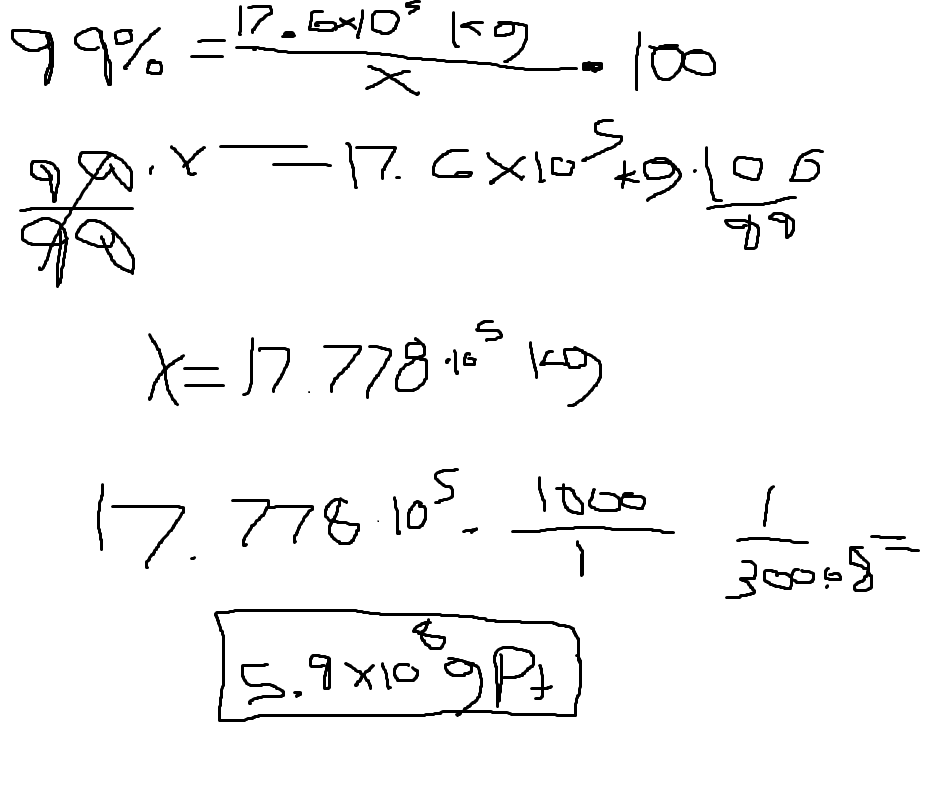 99% = 17.6×10⁵ kg / x · 100
99/99 · x = 17.6×10⁵ kg · 100/99
x = 17.778·10⁵ kg
17.778·10⁵ · 1000/1 1/300.8 =
5.9×10⁸ g Pt